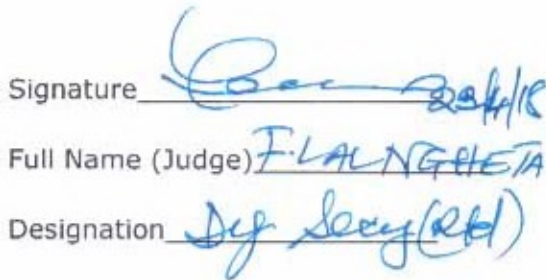 Signature 23/4/18
Full Name (Judge) F. LALNGHETA
Designation Dy Secy (Rtd)